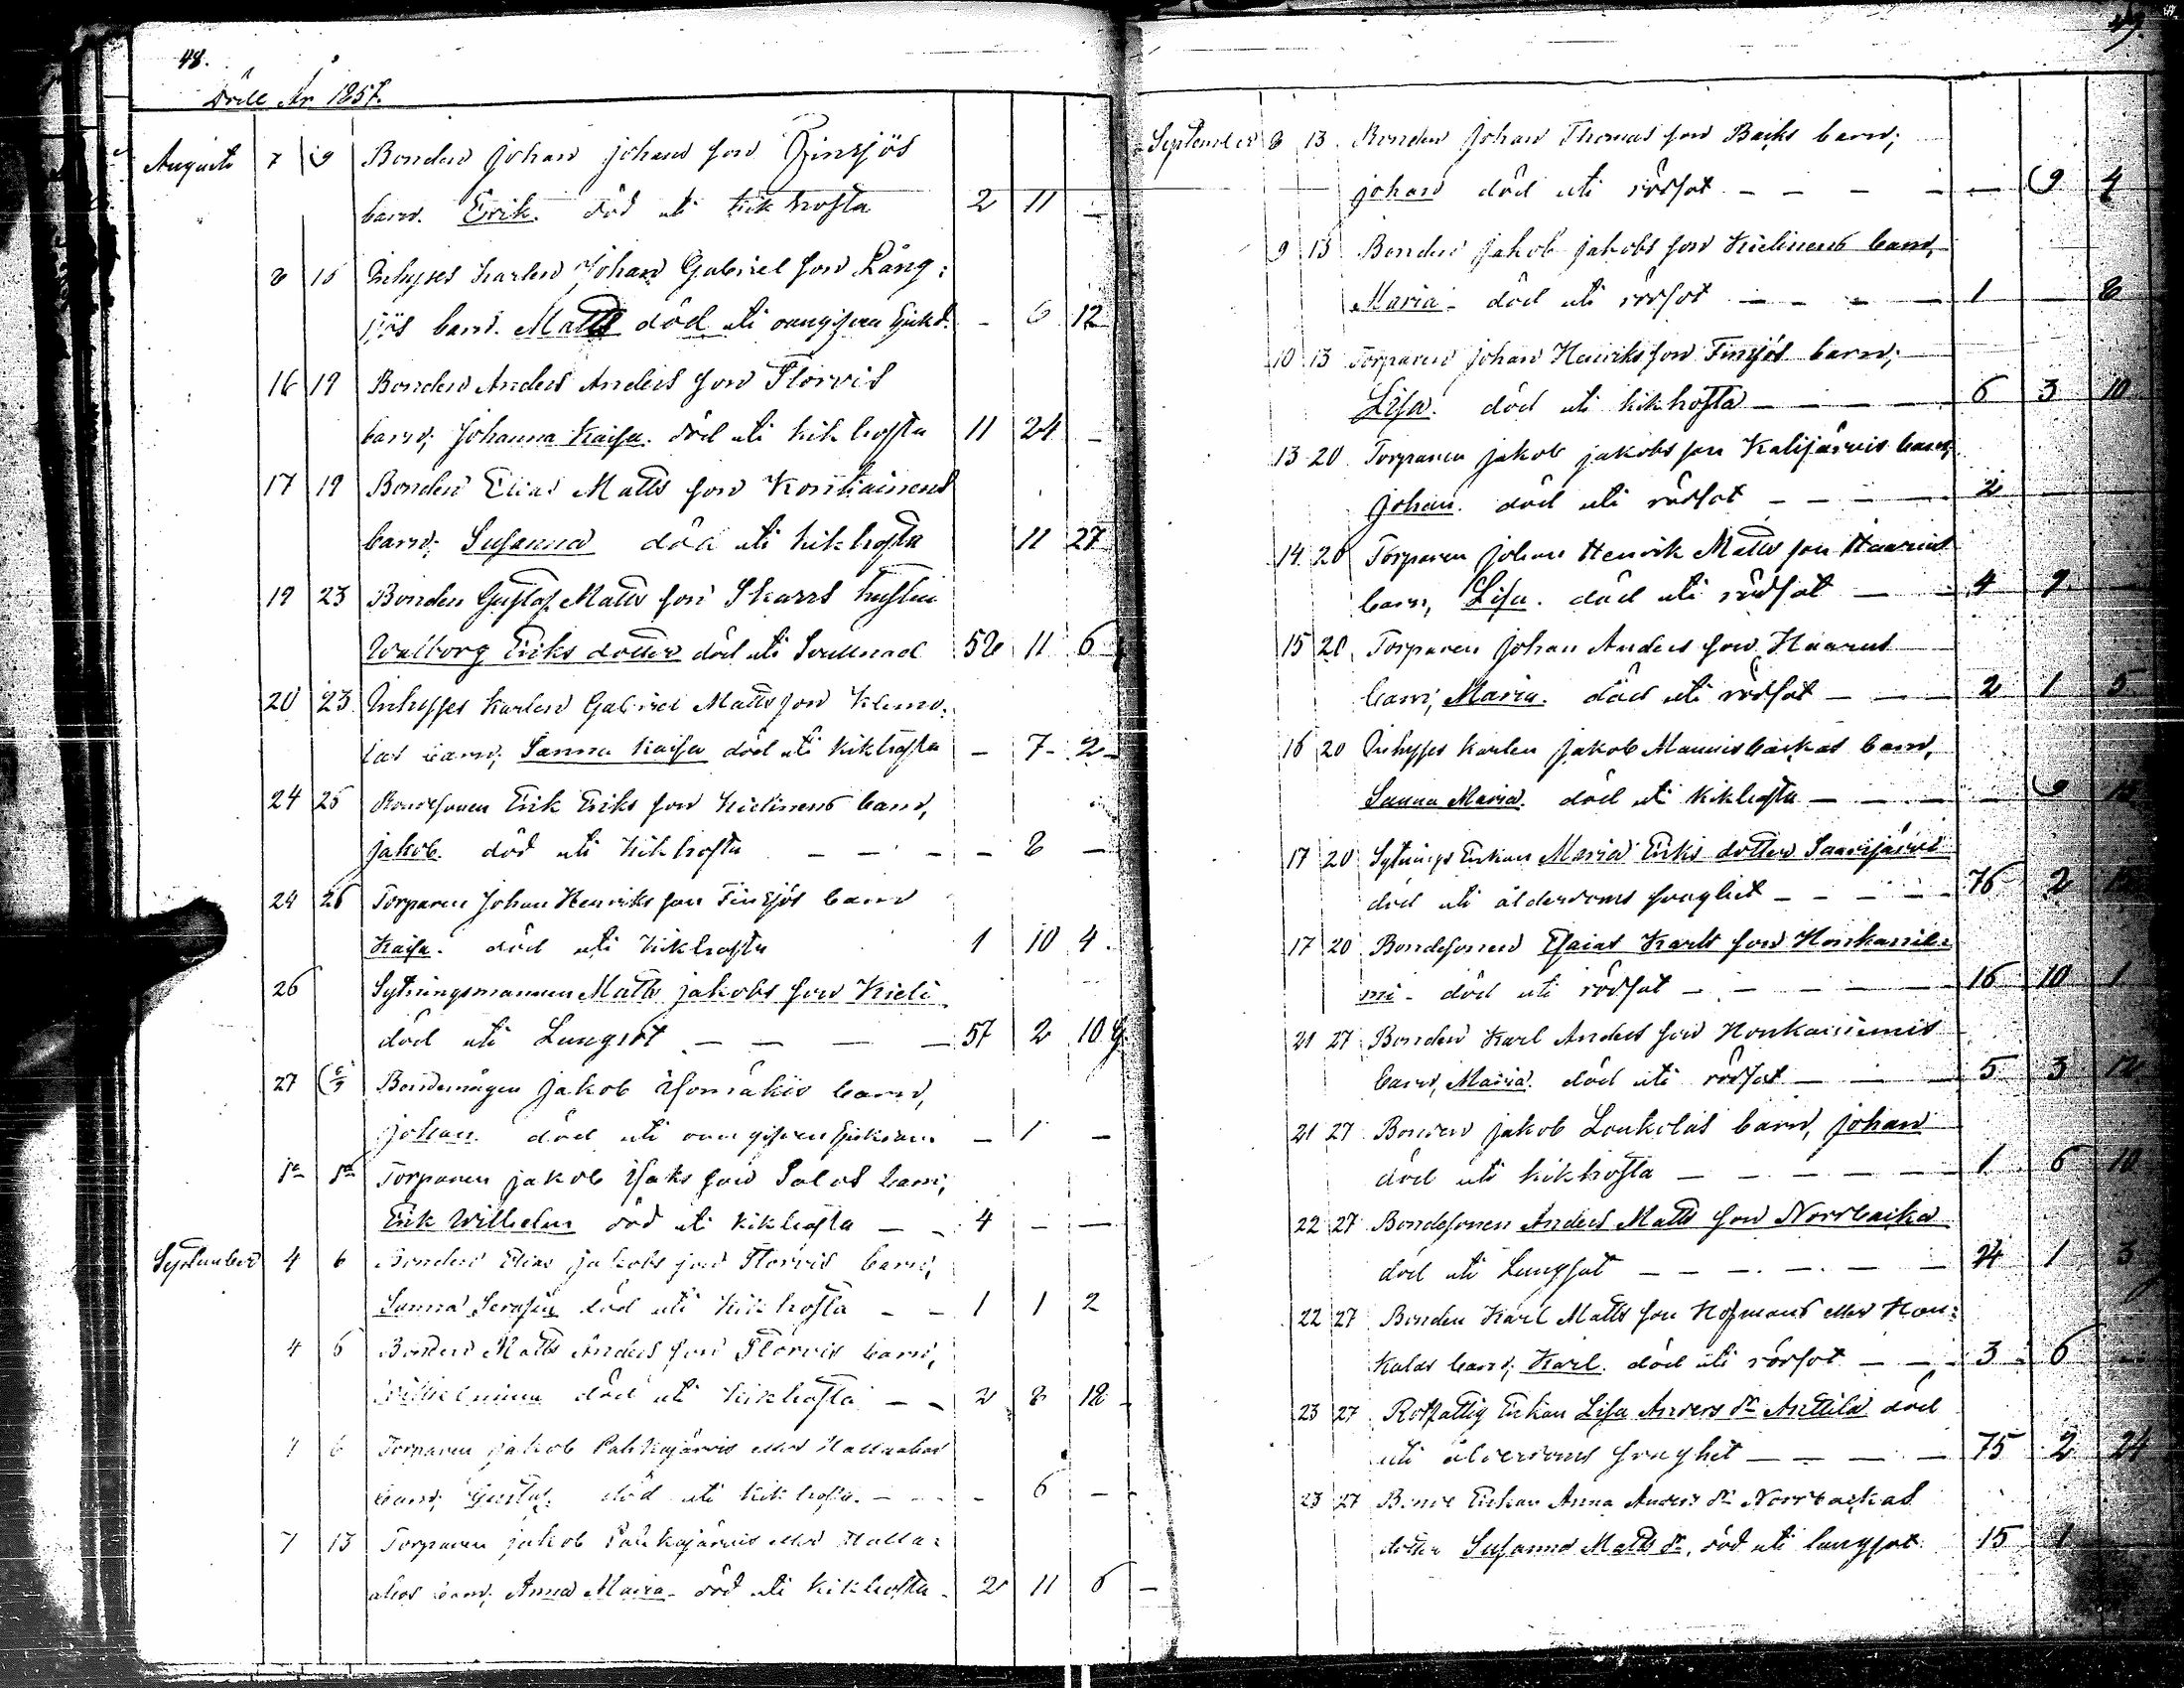 48.
Döde År 1857.
Augusti 7 9 Bonden Johan Johans son Finsjös
barn. Erik. död uti kikhosta 2 11 -
8 15 Inhyses karlen Johan Gabriel son Lång:
sjös barn. Matts död uti sjukd. - 6 12
16 19 Bonden Anders Anders son Storvis
barn; Johanna Kaisa. död uti kikhosta 11 24 -
17 19 Bonden Elias Matts son Kontiainens
barn; Susanna död uti kikhosta 11 27
19 23 Bonden Gustaf Matts son Skarrs hustru
Walborg Eriks dotter död uti Svullnad 52 11 6
20 23 Inhyses karlen Gabriel Matts son
barn; Sanna Kaisa död uti kikhosta - 7 - 2 -
24 25 Bondesonen Erik Eriks son Kielinens barn,
Jakob. död uti kikhosta - - - - 8 -
24 26 Torparen Johan Henriks son Finsjös barn
Kaisa. död uti kikhosta 1 10 4.
26 Sytningsmannen Matts Jakobs son Kieli
död uti Lungsot - - - - 57 2 10
27 Bondemågen Jakob Isomäkis barn,
Johan. död uti - 1 -
Torparen Jakob Isaks son Salos barn;
Erik Wilhelm död uti kikhosta - - 4 - -
September 4 6 Bonden Elias Jakobs son Storvis barn,
Sanna Serafia död uti kikhosta - - 1 1 2
4 6 Bonden Matts Anders son Storvis barn,
Wilhelmina död uti kikhosta - - 2 8 12 -
6 Torparen Jakob Pahkajärvis eller Hallaahos
barn; Gustaf. död uti kikhosta. - - - - 6 - -
7 13 Torparen Jakob Pahkajärvis eller Halla:
ahos barn; Anna Maria. död uti kikhosta. 2 11 6 -
49.
September 8 13 Bonden Johan Thomas son Backs barn;
Johan död uti rödsot - - - - - 9 4
9 13 Bonden Jakob Jakobs son Kielinens barn,
Maria - död uti rödsot - - - - 1 - 8
10 13 Torparen Johan Henriks son Finsjös barn;
Lisa. död uti kikhosta - - - - 6 3 10
13 20 Torparen Jakob Jakobs son Kalijärvis barn,
Johan. död uti rödsot - - - - 2 - -
14 20 Torparen Johan Henrik Matts son
barn, Lisa. död uti rödsot - - 4 9 -
15 20 Torparen Johan Anders son
barn; Maria. död uti rödsot - - - 2 1 5
16 20 Inhyses karlen Jakob Mannisbackas barn,
Sanna Maria. död uti kikhosta - - - - 9 15
17 20 Sytnings Enkan Maria Eriks dotter Saarijärvi
död uti ålderdoms svaghet - - - - 76 2
17 20 Bondesonen Esaias Karls son Honkanie:
mi - död uti rödsot - - - - - 16 10 1
21 27 Bonden Karl Anders son Honkaniemis
barn, Maria. död uti rödsot - - - 5 3 12
21 27 Bonden Jakob Loukolas barn, Johan
död uti kikhosta - - - - - - 1 6 10
22 27 Bondesonen Anders Matts son Norrbacka
död uti Lungsot - - - - - - 24 1 3
22 27 Bonden Karl Matts son Hofmans eller Hon:
kalas barn; Karl. död uti rödsot - - - 3 6 -
23 27 Rotfattig Enkan Lisa Anders dr Anttila död
uti ålderdoms svaghet - - - - 75 2 24
23 27 Bonde Enkan Anna Anders dr Norrbackas
dotter Susanna Matts dr. död uti lungsot. 15 1